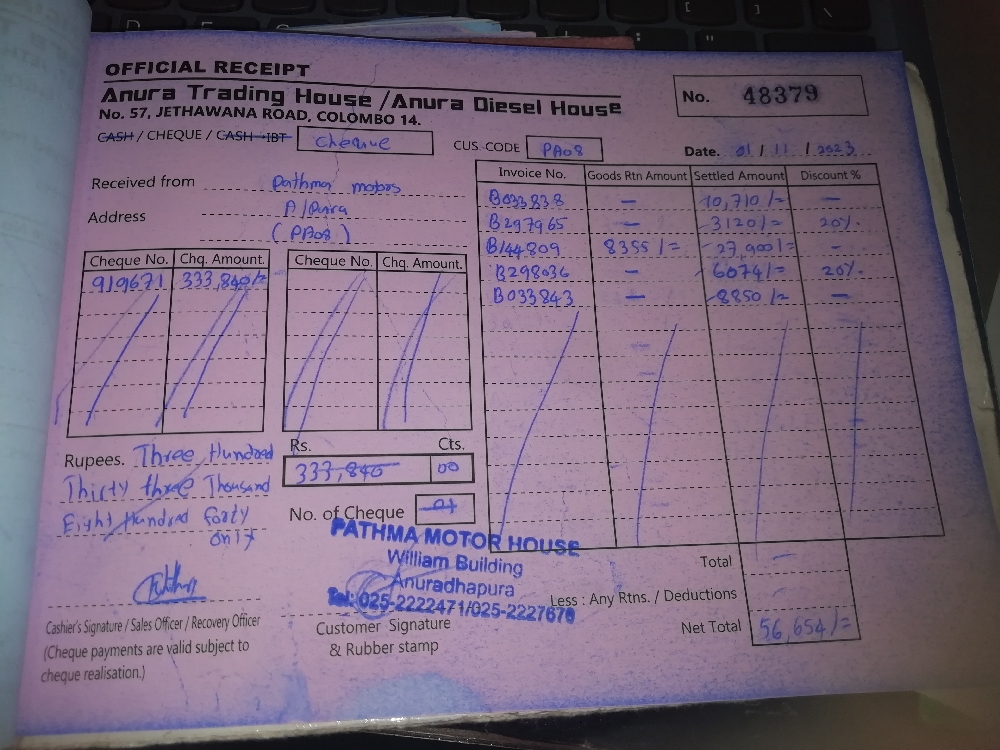 OFFICIAL RECEIPT
Anura Trading House / Anura Diesel House
No. 57, JETHAWANA ROAD, COLOMBO 14.
No. 48379
CASH / CHEQUE / CASH-IBT cheque
CUS-CODE PA08
Date. 01 / 11 / 2023
Received from Pathma motors
Address A/Pura
(PA08)
Invoice No. Goods Rtn Amount Settled Amount Discount %
B033838 — 10,710/= —
B297965 — 3120/= 20%
B144809 8355/= 27,900/= -
B298036 — 6074/= 20%
B033843 — 8850/= —
Cheque No. Chq. Amount. Cheque No. Chq. Amount.
919671 333,840/=
Rupees. Three Hundred
Thirty three Thousand
Eight Hundred forty
only
Rs. Cts.
333,840 00
No. of Cheque 01
PATHMA MOTOR HOUSE
William Building
Anuradhapura
Tel: 025-2222471/025-2227678
Total —
Less : Any Rtns. / Deductions
Net Total 56,654/=
Cashier's Signature / Sales Officer / Recovery Officer
(Cheque payments are valid subject to
cheque realisation.)
Customer Signature
& Rubber stamp